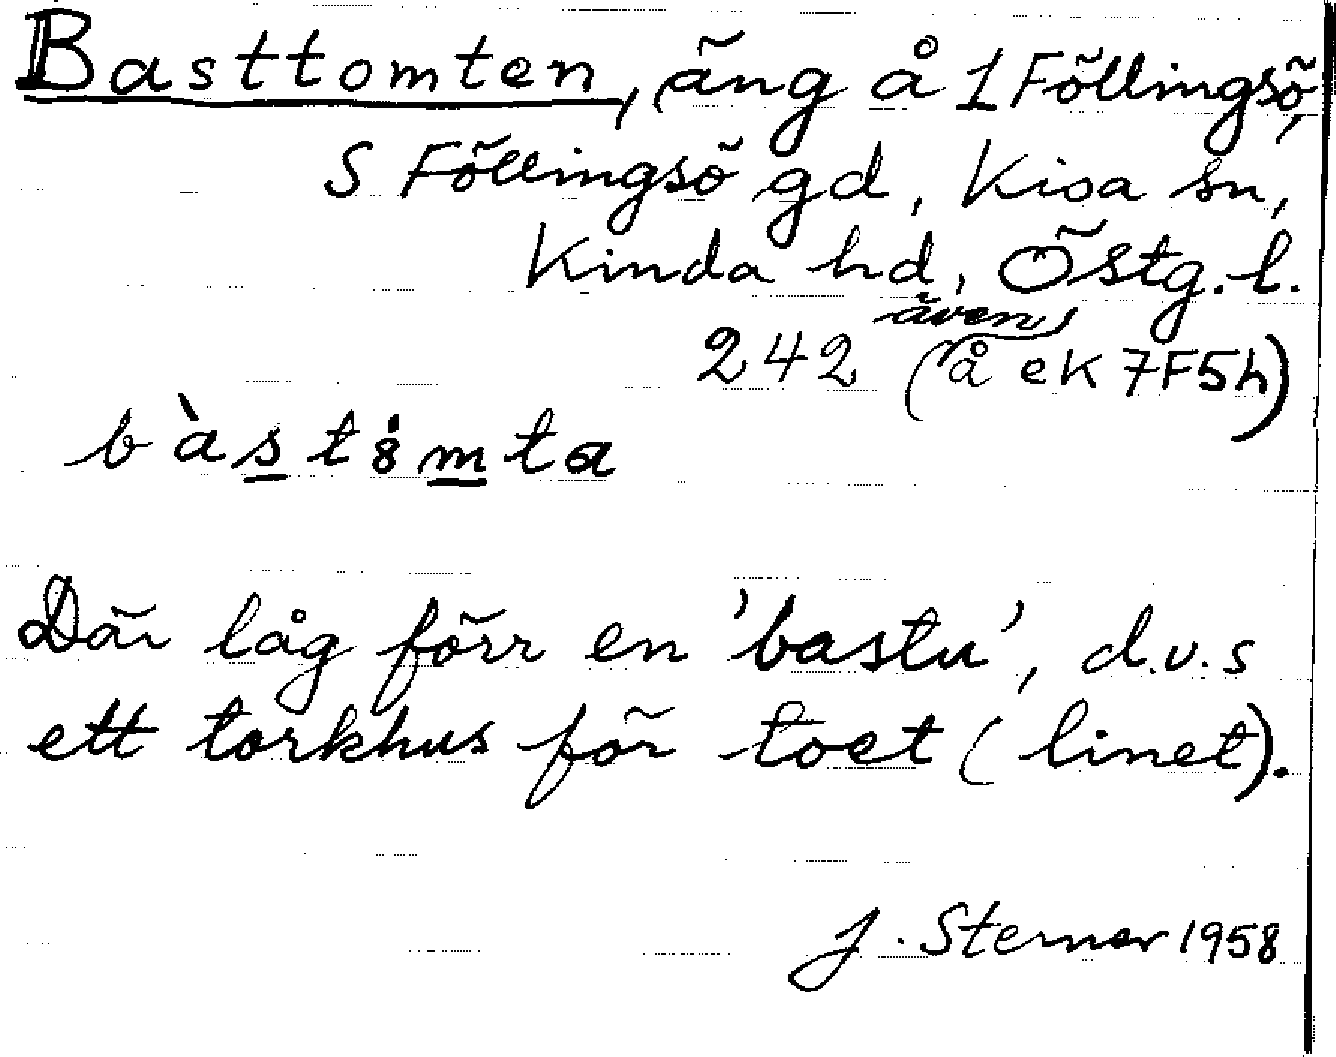 Basttomten, äng å 1 Föllingsö,
S Föllingsö gd, Kisa sn,
Kinda hd, Östg. l.
242 (även å eK 7F5h)
bàst8mta
Där låg förr en 'bastu', d.v.s
ett torkhus för toet (linet).
J. Sterner 1958